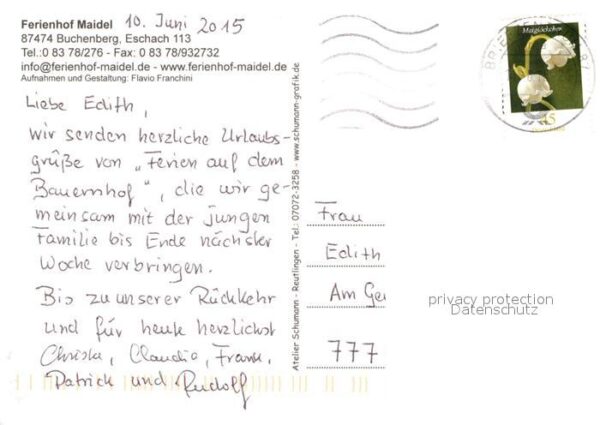 Ferienhof Maidel 10. Juni 2015
87474 Buchenberg, Eschach 113
Tel.:0 83 78/276 - Fax: 0 83 78/932732
info@ferienhof-maidel.de - www.ferienhof-maidel.de
Aufnahmen und Gestaltung: Flavio Franchini
Liebe Edith,
wir senden herzliche Urlaubs-
grüße von „Ferien auf dem
Bauernhof", die wir ge-
meinsam mit der jungen
Familie bis Ende nächster
Woche verbringen.
Bis zu unserer Rückkehr
und für heute herzlichst
Christa, Claudia, Frank,
Patrick und Rudolf
Atelier Schumann - Reutlingen - Tel.: 07072-3258 - www.schumann-grafik.de
Maiglöckchen
45
Frau
Edith
Am Ge
777
privacy protection
Datenschutz